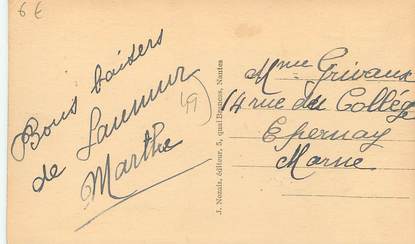 6 €
Bons baisers
de Saumur
Marthe
49
J. Nozais, éditeur, 5, quai Brancas, Nantes
Mme Grivaux
14 rue du Collège
Epernay
Marne